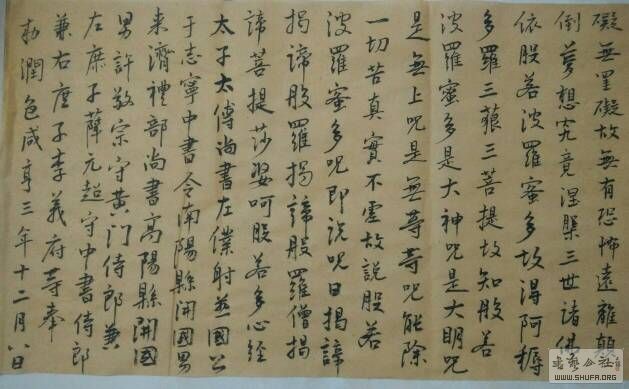 礙無罣礙故無有恐怖遠離顛
倒夢想究竟涅槃三世諸佛
依般若波羅蜜多故得阿耨
多羅三藐三菩提故知般若
波羅蜜多是大神咒是大明咒
是無上咒是無等等咒能除
一切苦真實不虛故說般若
波羅蜜多咒即說咒曰揭諦
揭諦般羅揭諦般羅僧揭
諦菩提莎婆呵般若多心經
太子太傅尚書左僕射燕國公
于志寧中書令南陽縣開國男
来濟禮部尚書高陽縣開國
男許敬宗守黃门侍郎兼
左庶子薛元超守中書侍郎
兼右庶子李義府等奉
勅潤色咸亨三年十二月八日
書藝公社
WWW.SHUFA.ORG